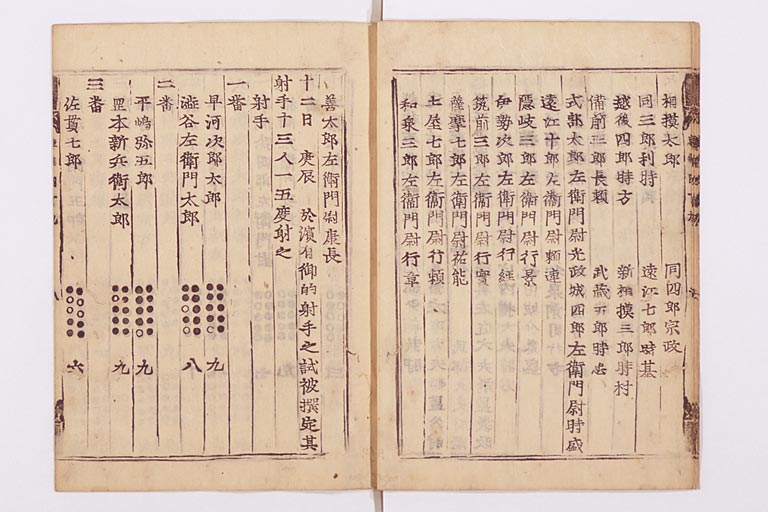 相摸太郎　同四郎宗政
同三郎利時　遠江七郎時基
越後四郎時方　新相摸三郎時村
備前三郎長頼　武藏五郎時忠
式部太郎左衞門尉光政　城四郎左衞門尉時盛
遠江十郎左衞門尉頼連
隱岐三郎左衞門尉行景
伊勢次郎左衞門尉行經
筑前三郎左衞門尉行實
薩摩七郎左衞門尉祐能
土屋七郎左衞門尉行頼
和泉三郎左衞門尉行章
善太郎左衞門尉康長
十二日　庚辰　於濱有御的射手之試被撰定其
射手十三人一五度射之
射手
一番
早河次郎太郎　九
澁谷左衞門太郎　八
二番
平嶋弥五郎　九
罡本新兵衞太郎　九
三番
佐貫七郎　六